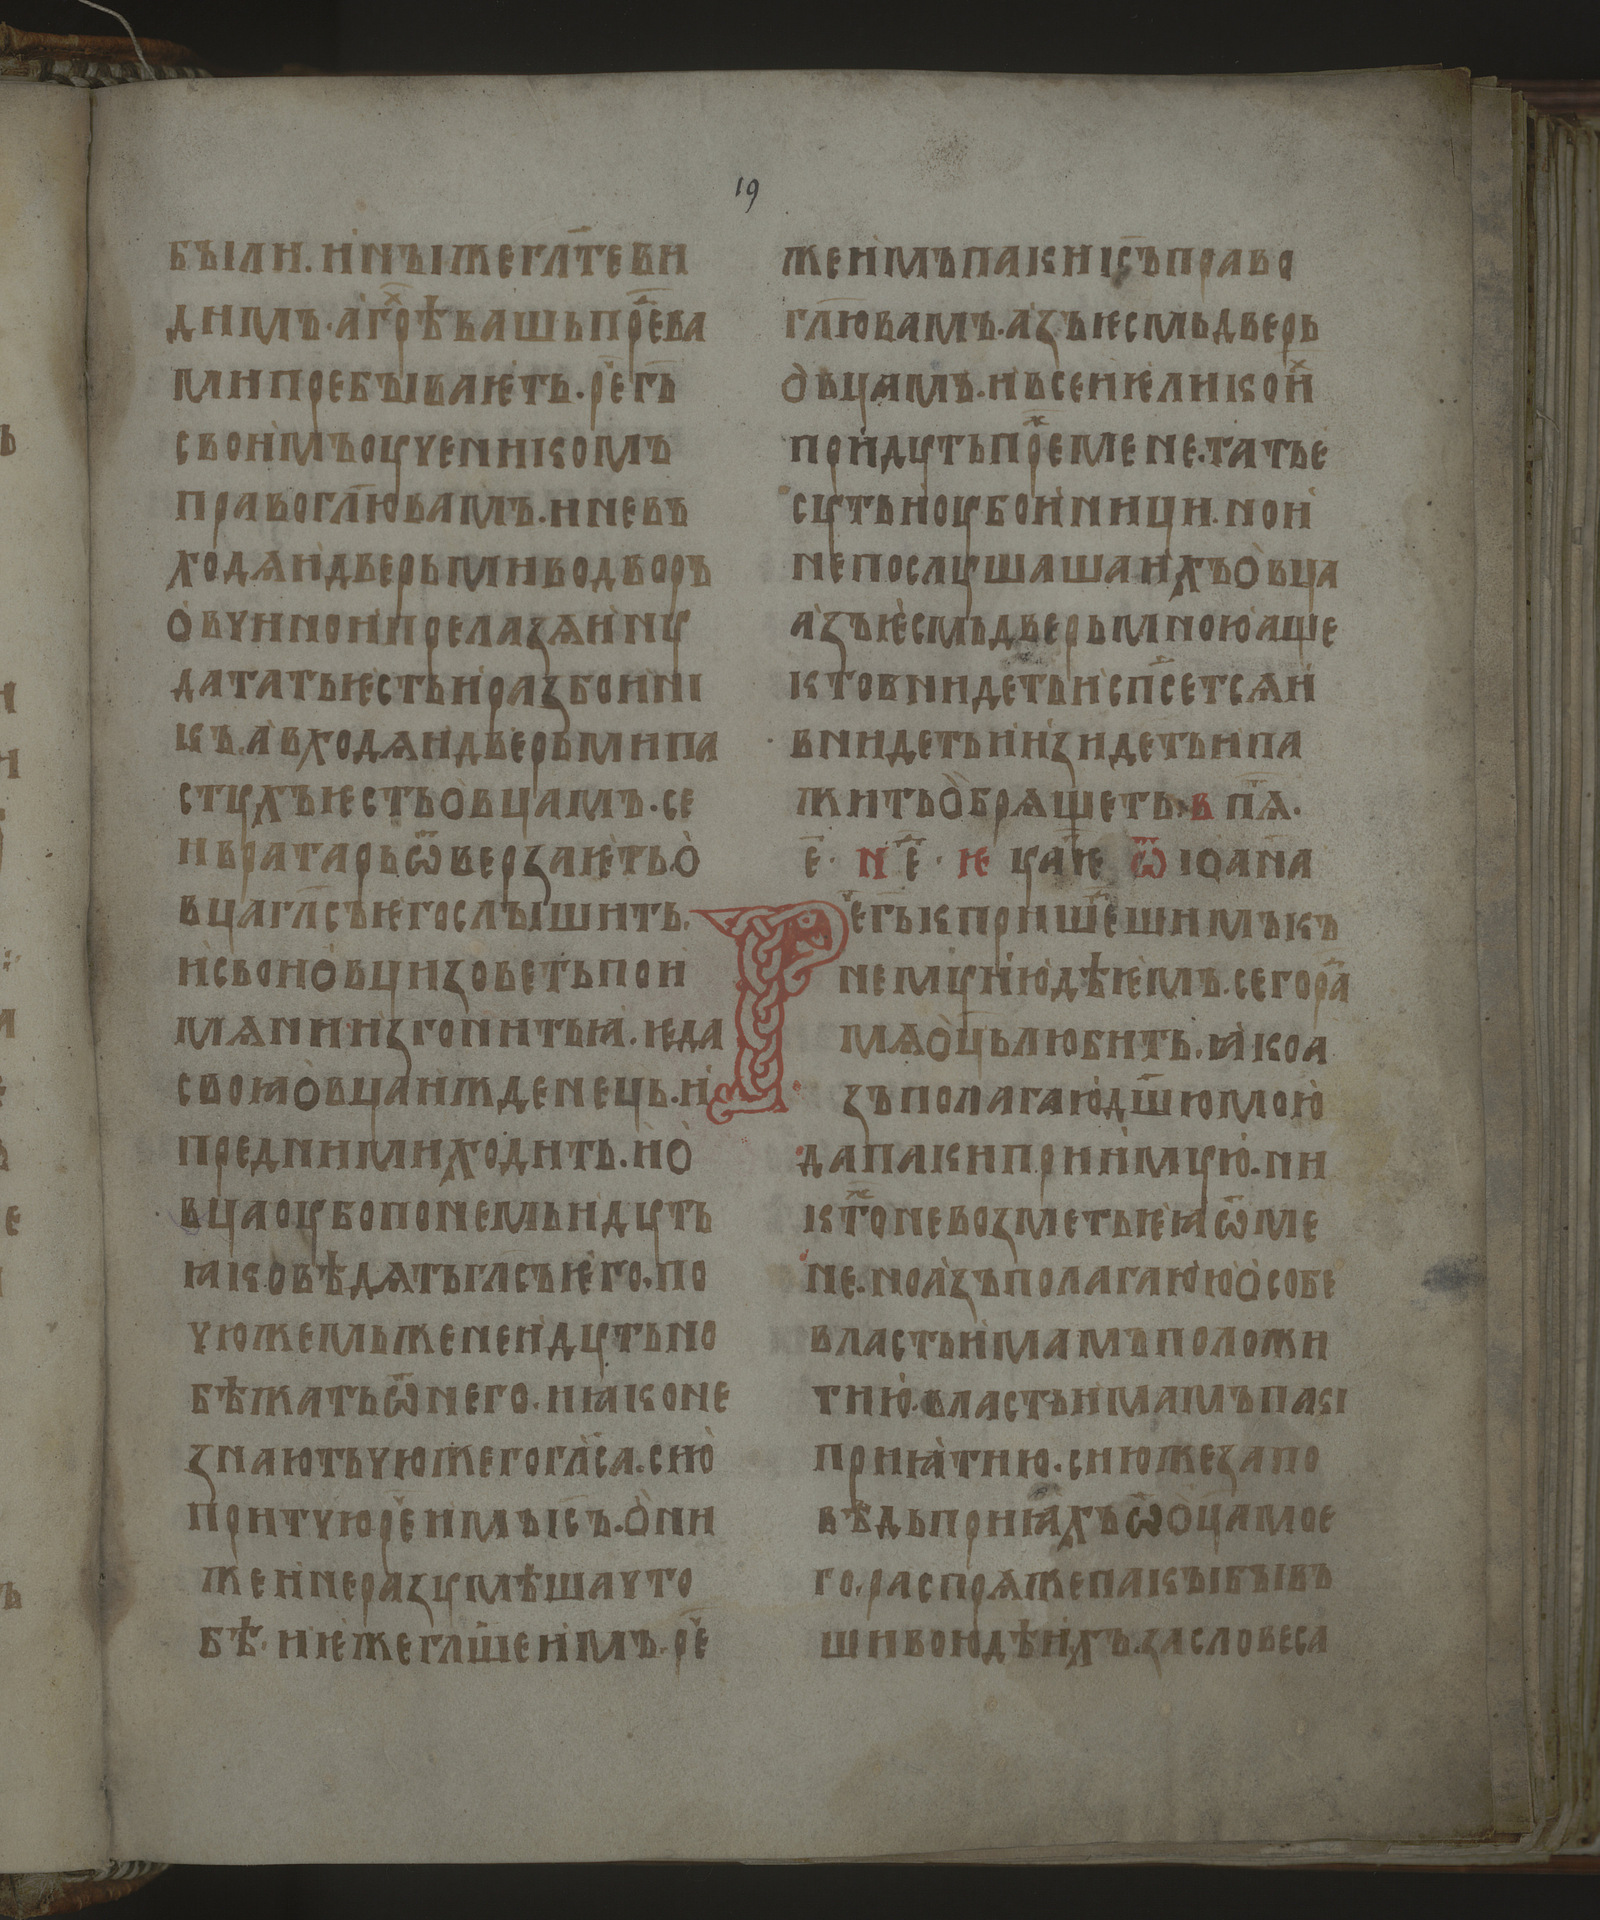 19
были. и нъı же гл҃те ви
димъ. а грⷯѣ вашь пре҃ва
ми пребъıваѥть. ре҃ гь҃
своимъ оцченикомъ
право гл҃ю вамъ. и не въ
ходѧи дверьми во дворъ
овчии ои прелазѧ инц
да тать ѥсть и разбоини
къ. а входѧи дверьми па
стцхъ ѥсть овцамъ. се
и вратарь ѿверзаѥть. о
вца гл҃съ ѥго слъıшить.
и свои овци зоветь по и
мѧни изгонить ꙗ. ѥда
своꙗ овца ижденець. и
пред ними ходить. и о
вца оцбо по немь идцть
ꙗко вѣдѧть гл҃съ ѥго. по
чюжемь же не идцть но
бѣжать ѿ него. и ꙗко не
знають чюжего гл҃са. сию
притчю ре҃ имъ ıс҃ъ. они
же и не разцмѣша что
бѣ. и ѥже гл҃ше имъ. ре҃
же имъ паки ıс҃ъ право
гл҃ю вамъ. азъ ѥсмь дверь
овцамъ. и въсе иѥлико иⷯ
поидцть преⷤ мене. татье
сцть и оцбоиници. но и
не послцшаша ихъ овца
азъ ѥсмь дверь мною аще
кто внидеть и сп҃сетсѧ и
внидеть и изидеть и па
жить обрѧщеть. в пѧ҃.
е҃. н е҃. ѥ цаⷩ҇ѥ ѿ ıоан҃а
Ре҃ гь҃ к пришеⷣшимъ къ
немц июдѣѥмъ. сего раⷣ
мѧ оц҃ь любить. ꙗко а
зъ полагаю дш҃ю мою
да паки приимцю. ни
ктоⷤ не возметь ѥꙗ ѿ ме
не. но азъ полагаю ю о собе
власть имамъ положи
ти ю. власть имамъ пакı
приꙗти ю. сию же запо
вѣдь приꙗхъ ѿ оц҃а мое
го. распрѧ же пакъı бъıвъ
ши во юдѣихъ. за словеса